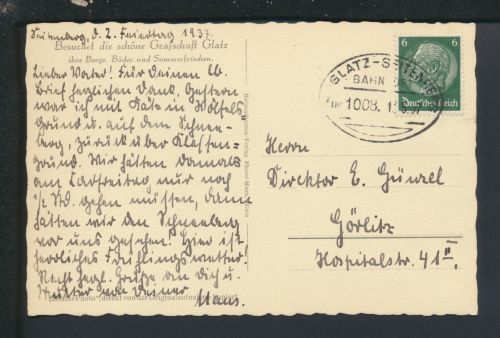 Seitenberg, d. 2. Feiertag 1937.
Besuchet die schöne Grafschaft Glatz
ihre Berge, Bäder und Sommerfrischen.
Lieber Vater! Für Deinen lb.
Brief herzlichen Dank. Gestern
war ich mit Käte in Wölfels
grund u. auf dem Schnee-
berg, zurück über Klessen-
grund. Wir hätten damals
am Karfreitag nur noch
½ Std. gehen müssen, dann
hätten wir den Schneeberg
vor uns gesehen! Hier ist
herrliches Frühlingswetter!
Recht herzl. Grüße an dich u.
Mutter von Deiner
Photo direkt von der Originalaufnahme
Verlag
GLATZ-SEITENBE
BAHN
1008. 1
6 6
Deutsches Reich
Herrn
Direktor E. Günzel
Görlitz
Hospitalstr. 41 II.